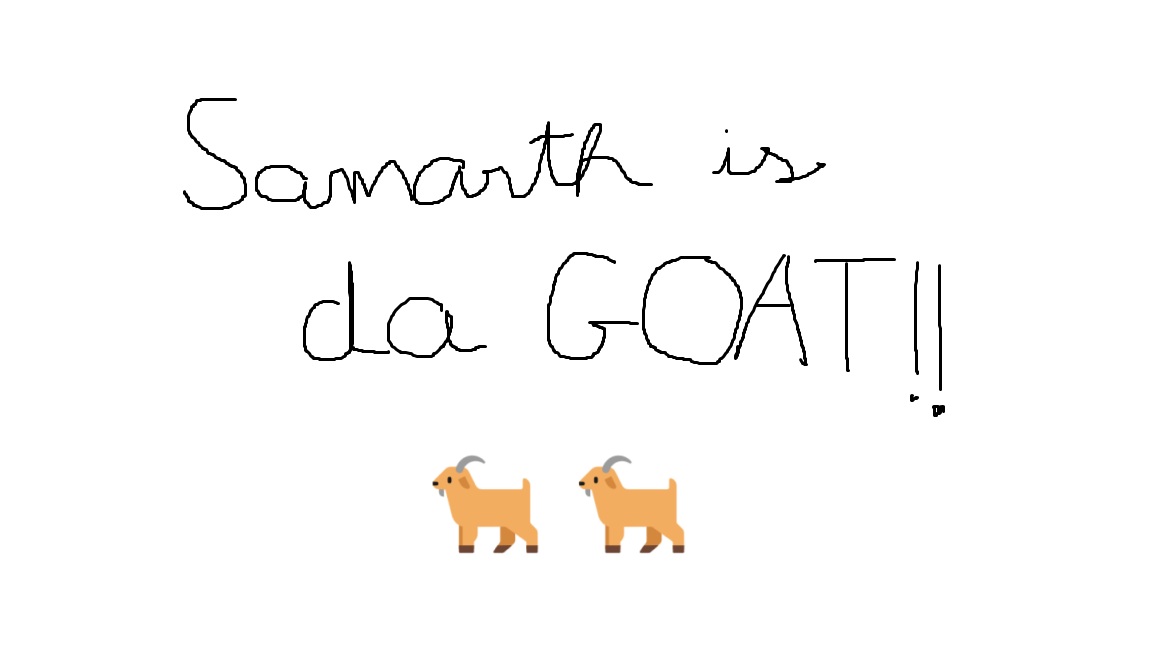 Samarth is
da GOAT!!